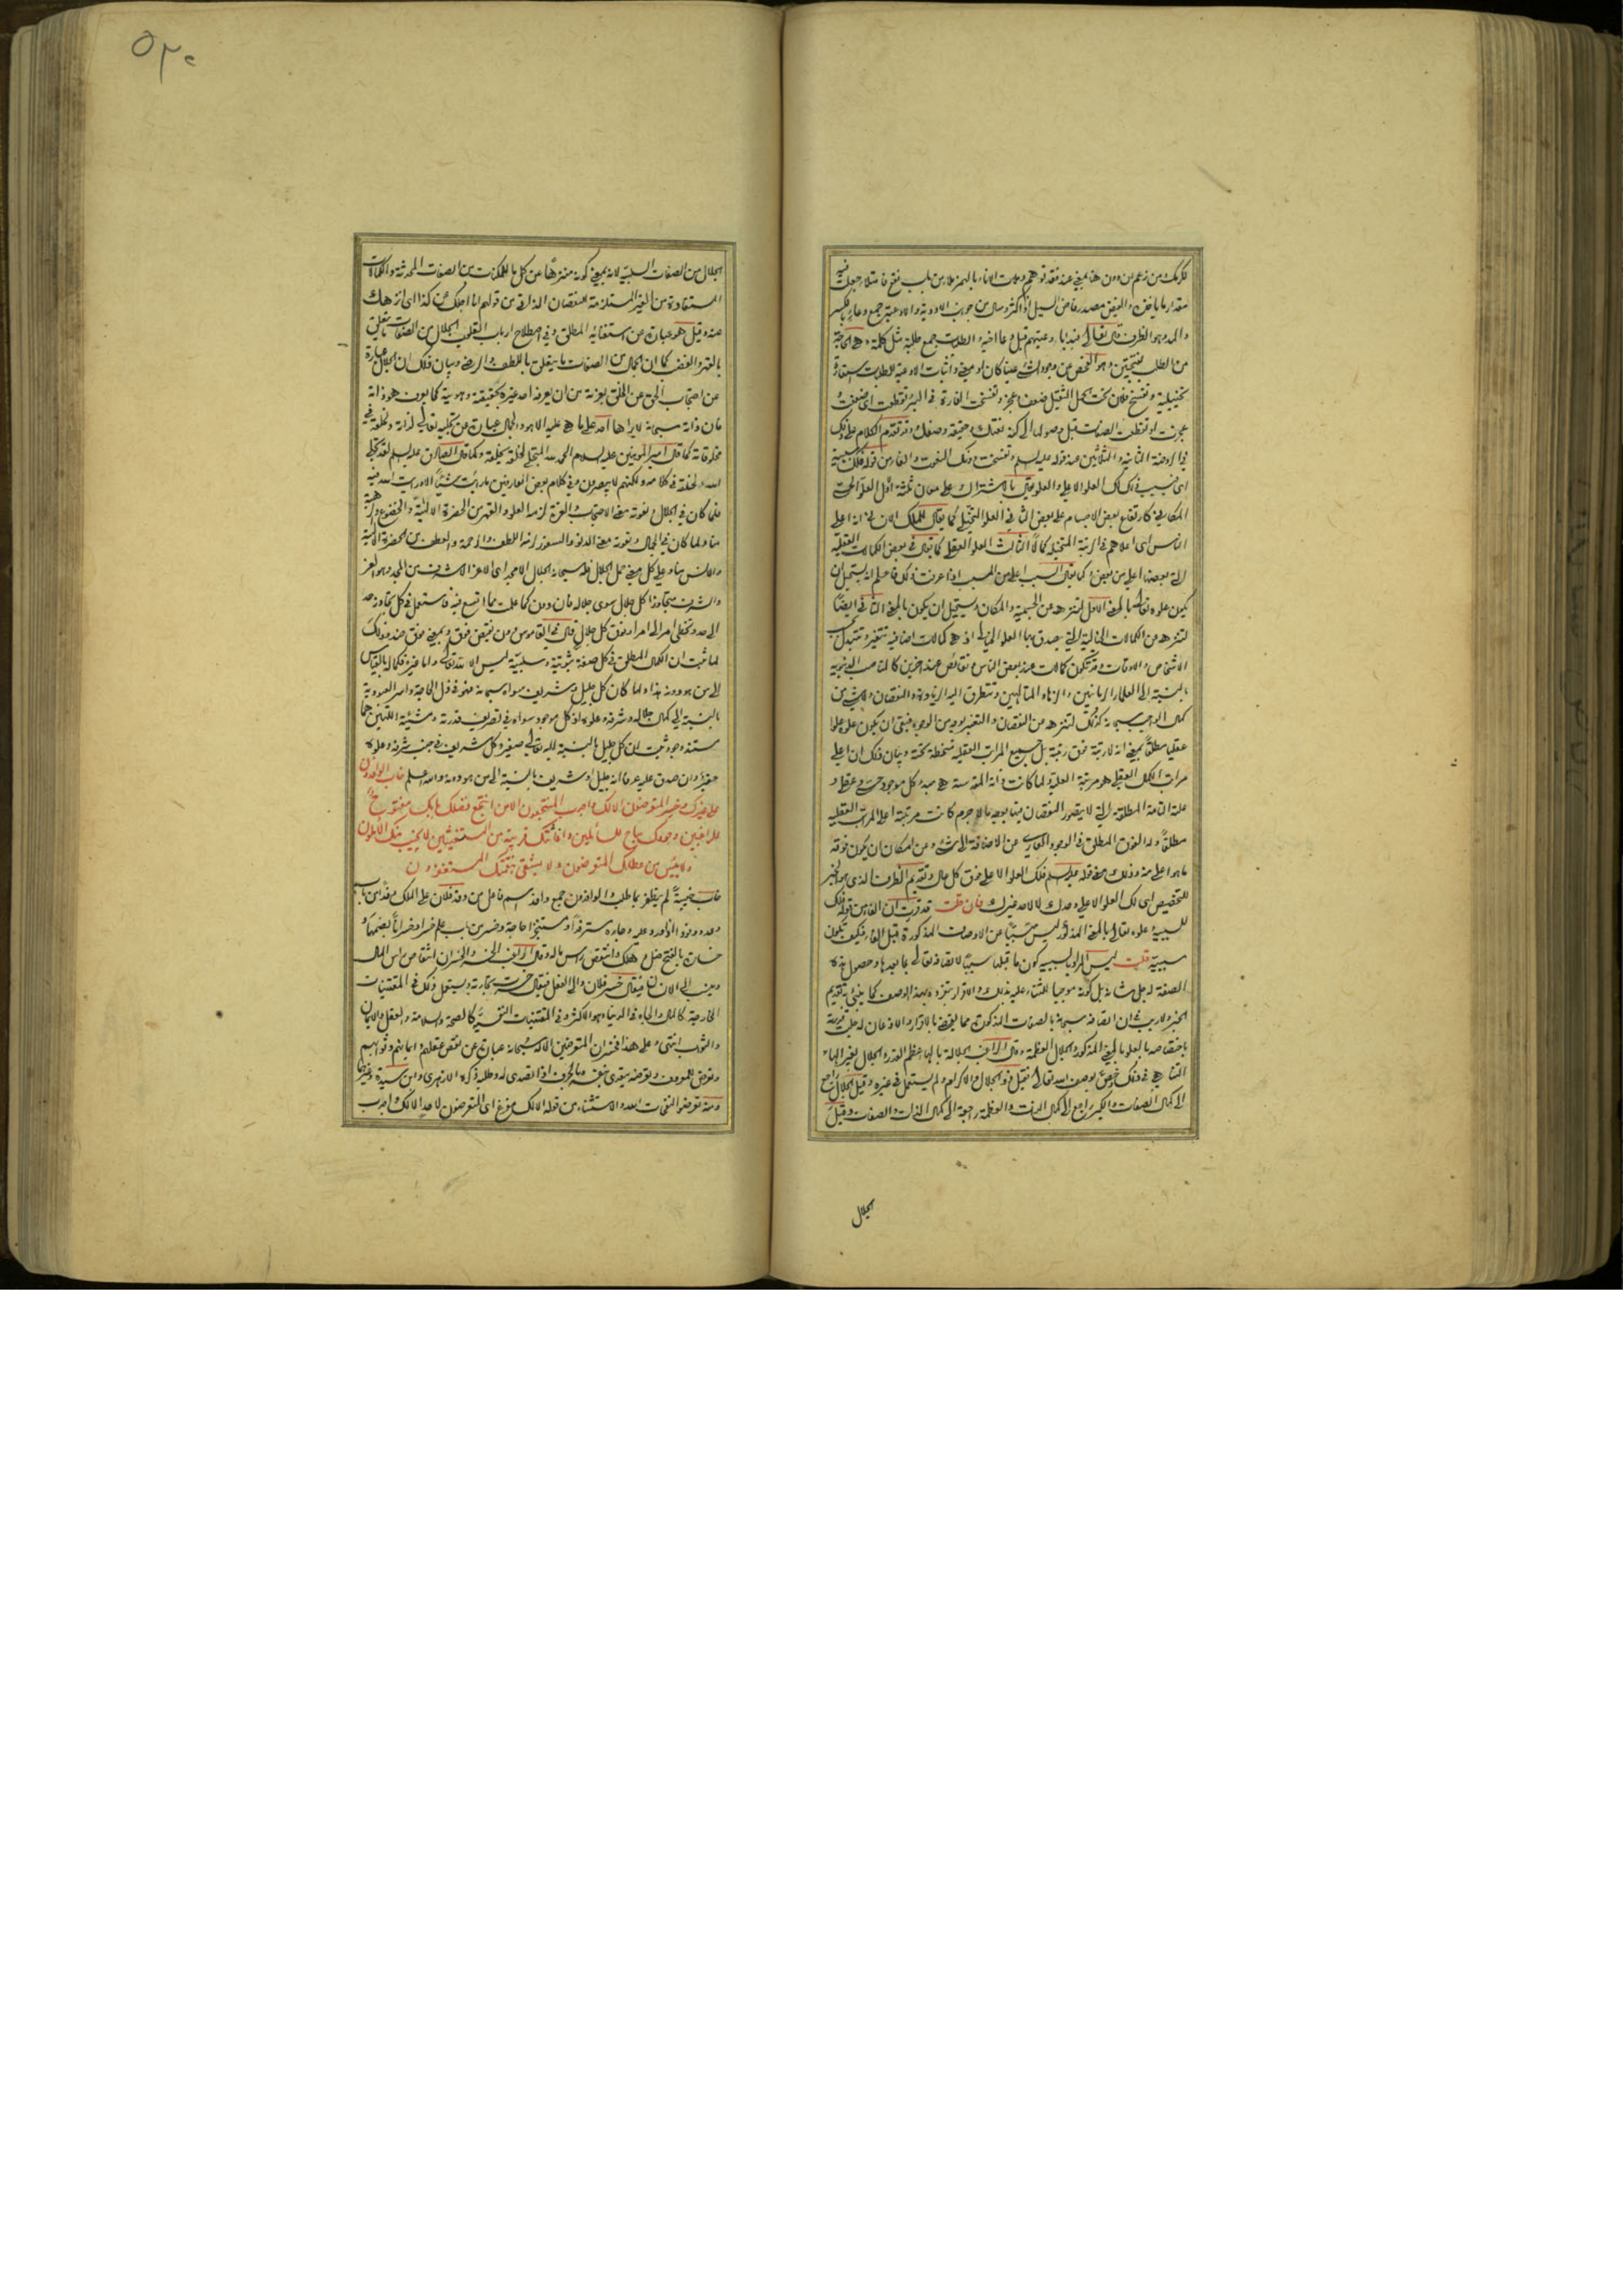 مقدار ما ياخذه والفيض مصدر فاض السيل اذا كثر وسال من جوانب الاودية والاوعية جمع وعاء بالكسر
والمد وهو الظرف قال تعالى فبدا باوعيتهم قبل وعاء اخيه والطلبات جمع طلبة مثل كلمة وهي الحاجة
تخييلية وتفسخ فلان تحت الحمل الثقيل ضعف وعجز وتفسخت الفارة في البئر تقطعت اى ضعفت و
عجزت او تقطعت الصفات قبل وصولها الى كنه نعتك وحقيقة وصفك وقد تقدم الكلام على ذلك
في الروضة الثانية والثلاثين عند قوله عليه السلم وتفسخت دونك النعوت والفاء من قوله فلك سببية
اى فبسبب ذلك لك العلو الاعلى والعلو يقال بالاشتراك على معان ثلثة الاول العلو الحسى
المكاني كارتفاع بعض الاجسام على بعض الثاني العلو التخيلى كما يقال للملك الانسانى انه اعلى
الناس اى اعلاهم في الرتبة المتخيلة كمالا الثالث العلو العقلى كما يقال في بعض الكمالات العقلية
التى بعضها اعلى من بعض وكما يقال السبب اعلى من المسبب اذا عرفت ذلك فاعلم انه يستحيل ان
يكون علوه تعالى بالمعنى الاول لتنزهه عن الجسمية والمكان ويستحيل ان يكون بالمعنى الثاني ايضا
لتنزهه عن الكمالات الخيالية التى يصدق بها العلو الخيالى اذ هى كمالات اضافية تتغير وتتبدل بحسب
الاشخاص والاوقات وقد تكون كمالات عند بعض الناس ونقائص عند اخرين كالمناصب الدنيوية
بالنسبة الى العلماء الربانيين والزهاد المتالهين وتتطرق اليه الزيادة والنقصان ولا شئ من
كمال الواجب سبحانه كذلك لتنزهه عن النقصان والتغير بوجه من الوجوه فبقى ان يكون علوه علوا
عقليا مطلقا بمعنى انه لا رتبة فوق رتبة بل جميع المراتب العقلية منحطة تحته وبيان ذلك ان اعلى
مراتب الكمال العقلى هو مرتبة العلية ولما كانت ذاته المقدسة هى مبدء كل موجود حسى وعقلى و
علته التامة المطلقة التى لا يتصور النقصان فيها بوجه ما لا جرم كانت مرتبته اعلى المراتب العقلية
مطلقا وله الفوق المطلق في الوجود العارى عن الاضافة الى شئ وعن امكان ان يكون فوقه
ما هو اعلى منه وذلك معنى قوله عليه السلم فلك العلو الاعلى فوق كل عال وتقديم الظرف الذى هو الخبر
للتخصيص اى لك العلو الاعلى وحدك لا لاحد غيرك فان قلت قد قررت ان الفاء من قوله فلك
للسببية وعلوه تعالى بالمعنى المذكور ليس مسببا عن الاوصاف المذكورة قبل الفاء فكيف تكون
سببية قلت ليس المراد بالسببية كون ما قبلها سببا لاتصافه تعالى بما بعدها وحصول هذه
الصفة له جل شانه بل كونه موجبا للثناء عليه بذلك والاقرار بتفرده بهذا الوصف كما ينبئ تقديم
الخبر ولا ريب في ان اتصافه سبحانه بالصفات المذكورة مما يقتضى بالاقرار والاذعان له جلت قدرته
باختصاصه بالعلو بالمعنى المذكور والجلال العظمة وقال الراغب الجلالة بالهاء عظم القدر والجلال بغير الهاء
التناهى في ذلك وخص بوصف الله تعالى فقيل ذو الجلال والاكرام ولم يستعمل في غيره وقيل الجلال راجع
الى كمال الصفات والكبرياء راجع الى كمال الذات والعظمة راجعة الى كمال الذات والصفات وقيل
الجلال
٥٢٠
الجلال من الصفات السلبية لانه بمعنى كونه منزها عن كل ما للممكنات من الصفات المحدثة والكمالات
المستفادة من الغير المستلزمة للنقصان الذاتى من قولهم انا اجلك عن كذا اى انزهك
عنه وقيل هو عبارة عن استغنائه المطلق وفي اصطلاح ارباب القلوب الجلال من الصفات ما يتعلق
بالقهر والغضب كما ان الجمال من الصفات ما يتعلق باللطف والرضا وبيان ذلك ان الجلال عبارة
عن احتجاب الحق عن الخلق بعزته من ان يعرفه احد غيره بحقيقته وهويته كما يعرف هو ذاته
فان ذاته سبحانه لا يراها احد على ما هى عليه الا هو والجمال عبارة عن تجليه تعالى لذاته ولخلقه في
مخلوقاته كما قال امير المومنين عليه السلام الحمد لله المتجلى لخلقه بخلقه وكما قال الصادق عليه السلم لقد تجلى
الله لخلقه في كلامه ولكنهم لا يبصرون وفي كلام بعض العارفين ما رايت شيئا الا ورايت الله فيه
فلما كان في الجلال ونعوته معنى الاحتجاب والعزة لزمه العلو والقهر من الحضرة الالهية والخضوع والهيبة
منا ولما كان في الجمال ونعوته معنى الدنو والسفور لزمه اللطف والرحمة والعطف من الحضرة الالهية
والانس منا وعلى كل معنى حمل الجلال فله سبحانه الجلال الامجد اى الاعز الاشرف من المجد وهو العز
والشرف متجاوزا كل جلال سوى جلاله فان دون كما علمت مما اتسع فيه فاستعمل في كل تجاوز حد
الى حد وتخطى امر الى امر او فوق كل جلال قال في القاموس دون نقيض فوق وبمعنى فوق ضد وذلك
لما ثبت ان الكمال المطلق في كل صفة ثبوتية وسلبية ليس الا لله تعالى واما غيره فكماله بالقياس
الى من هو دونه هذا ولما كان كل جليل وشريف سواه سبحانه فهو في ذل الحاجة واسر العبودية
بالنسبة الى كمال جلاله وشرفه وعلوه اذ كل موجود سواه في تصريف قدرته ومشيئته اللتين هما
مستند وجوده ثبت ان كل جليل بالنسبة اليه تعالى صغير وكل شريف في جنب شرفه وعلوه
حقير وان صدق عليه عرفا انه جليل او شريف بالنسبة الى من هو دونه والله اعلم خاب الوافدون
على غيرك وخسر المتعرضون الا لك واجدب المنتجعون الا من انتجع فضلك بابك مفتوح
للراغبين وجودك مباح للسائلين واغاثتك قريبة من المستغيثين لا يخيب منك الآملون
ولا يئيس من عطائك المتعرضون ولا يشقى بنقمتك المستغفرون
خاب خيبة لم يظفر بما طلب والوافدون جمع وافد اسم فاعل من وفد فلان على الملك وفدا من باب
خسارة بالفتح ضل وهلك وانتقص راس ماله وقال الراغب الخسر والخسران انتقاص راس المال
وينسب الى الانسان فيقال خسر فلان والى الفعل فيقال خسرت تجارته ويستعمل ذلك في المقتنيات
الخارجة كالمال والجاه في الدنيا وهو الاكثر وفي المقتنيات النفسية كالصحة والسلامة والعقل والايمان
والثواب انتهى وعلى هذا فخسران المتعرضين الا له سبحانه عبارة عن نقص عقلهم وايمانهم وثوابهم
وتعرض للمعروف وتعرضه يتعدى بنفسه وبالحرف اذا تصدى له وطلبه ذكره الازهرى وابن سيدة وغيرهما
ومنه تعرضوا لنفحات الله والاستثناء من قوله الا لك مفرغ اى المتعرضون لاحد الا لك واجدب